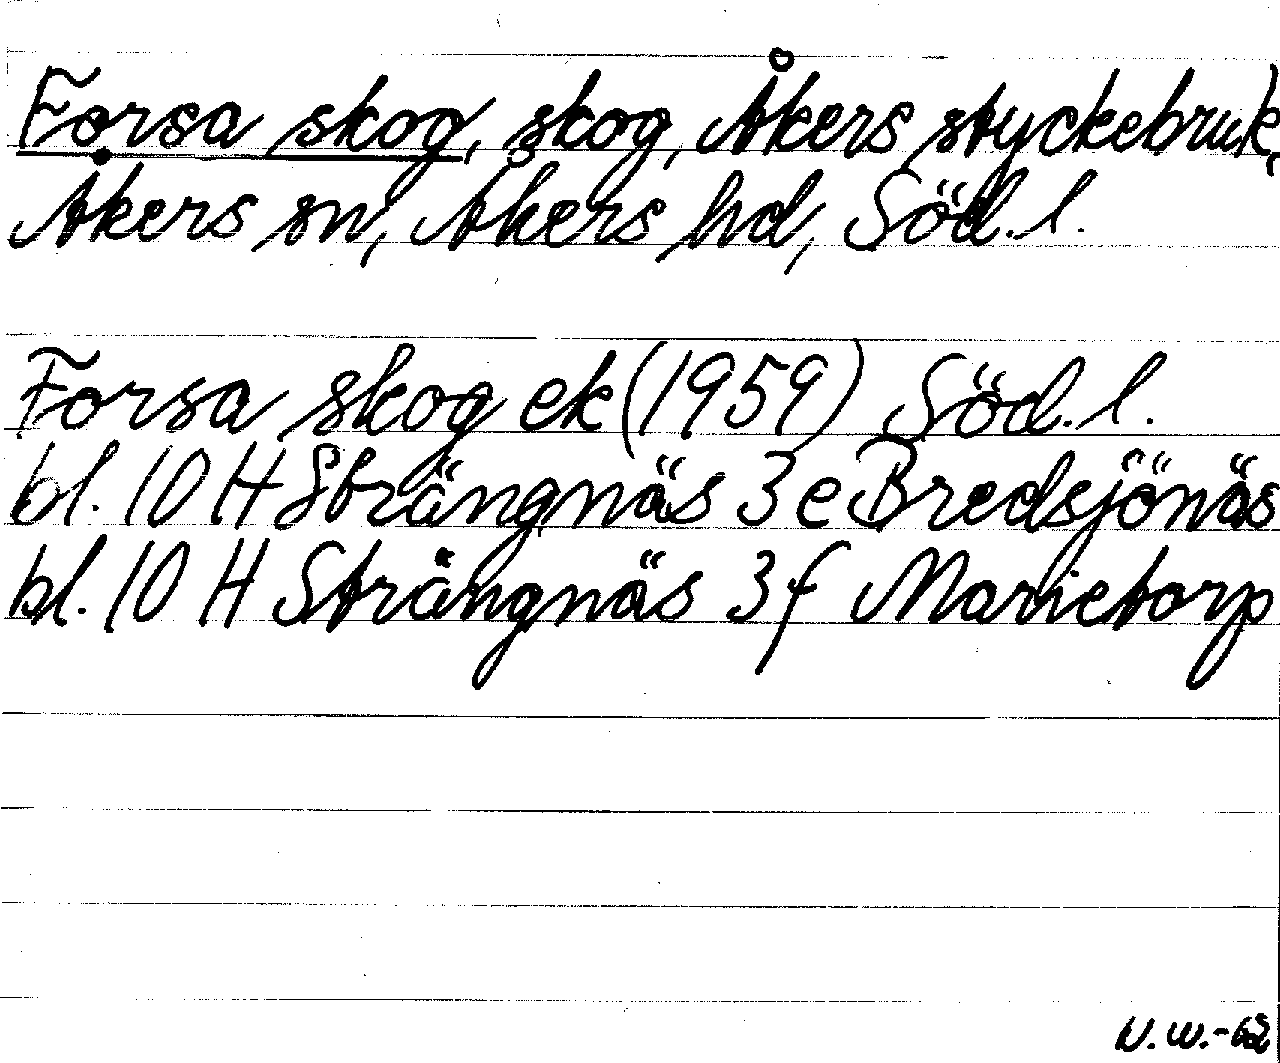 Forsa skog, skog, Åkers styckebruk,
Åkers sn, Åkers hd, Söd. l.
Forsa skog ek (1959) Söd. l.
bl. 10 H Strängnäs 3 e Bredsjönäs
bl. 10 H Strängnäs 3 f Marietorp